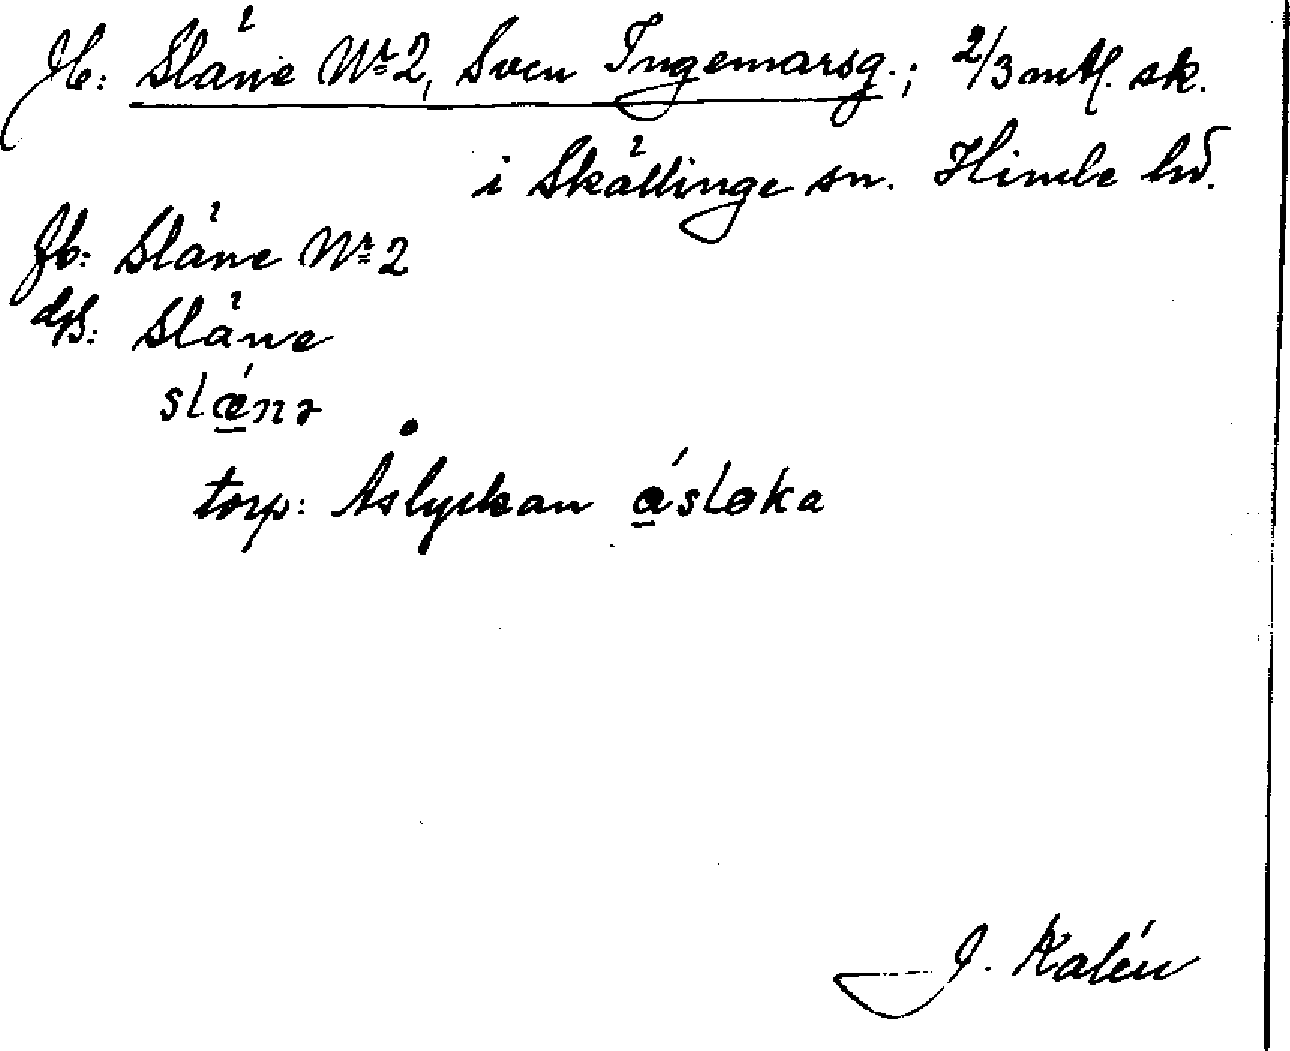 Jb: Släne Nr 2, Sven Ingemarsg.; 2/3 mtl. sk.
i Skällinge sn. Himle hd.
Jb: Släne Nr 2
GS: Släne
slǽnə
torp: Åslyckan ásløka
J. Kalén